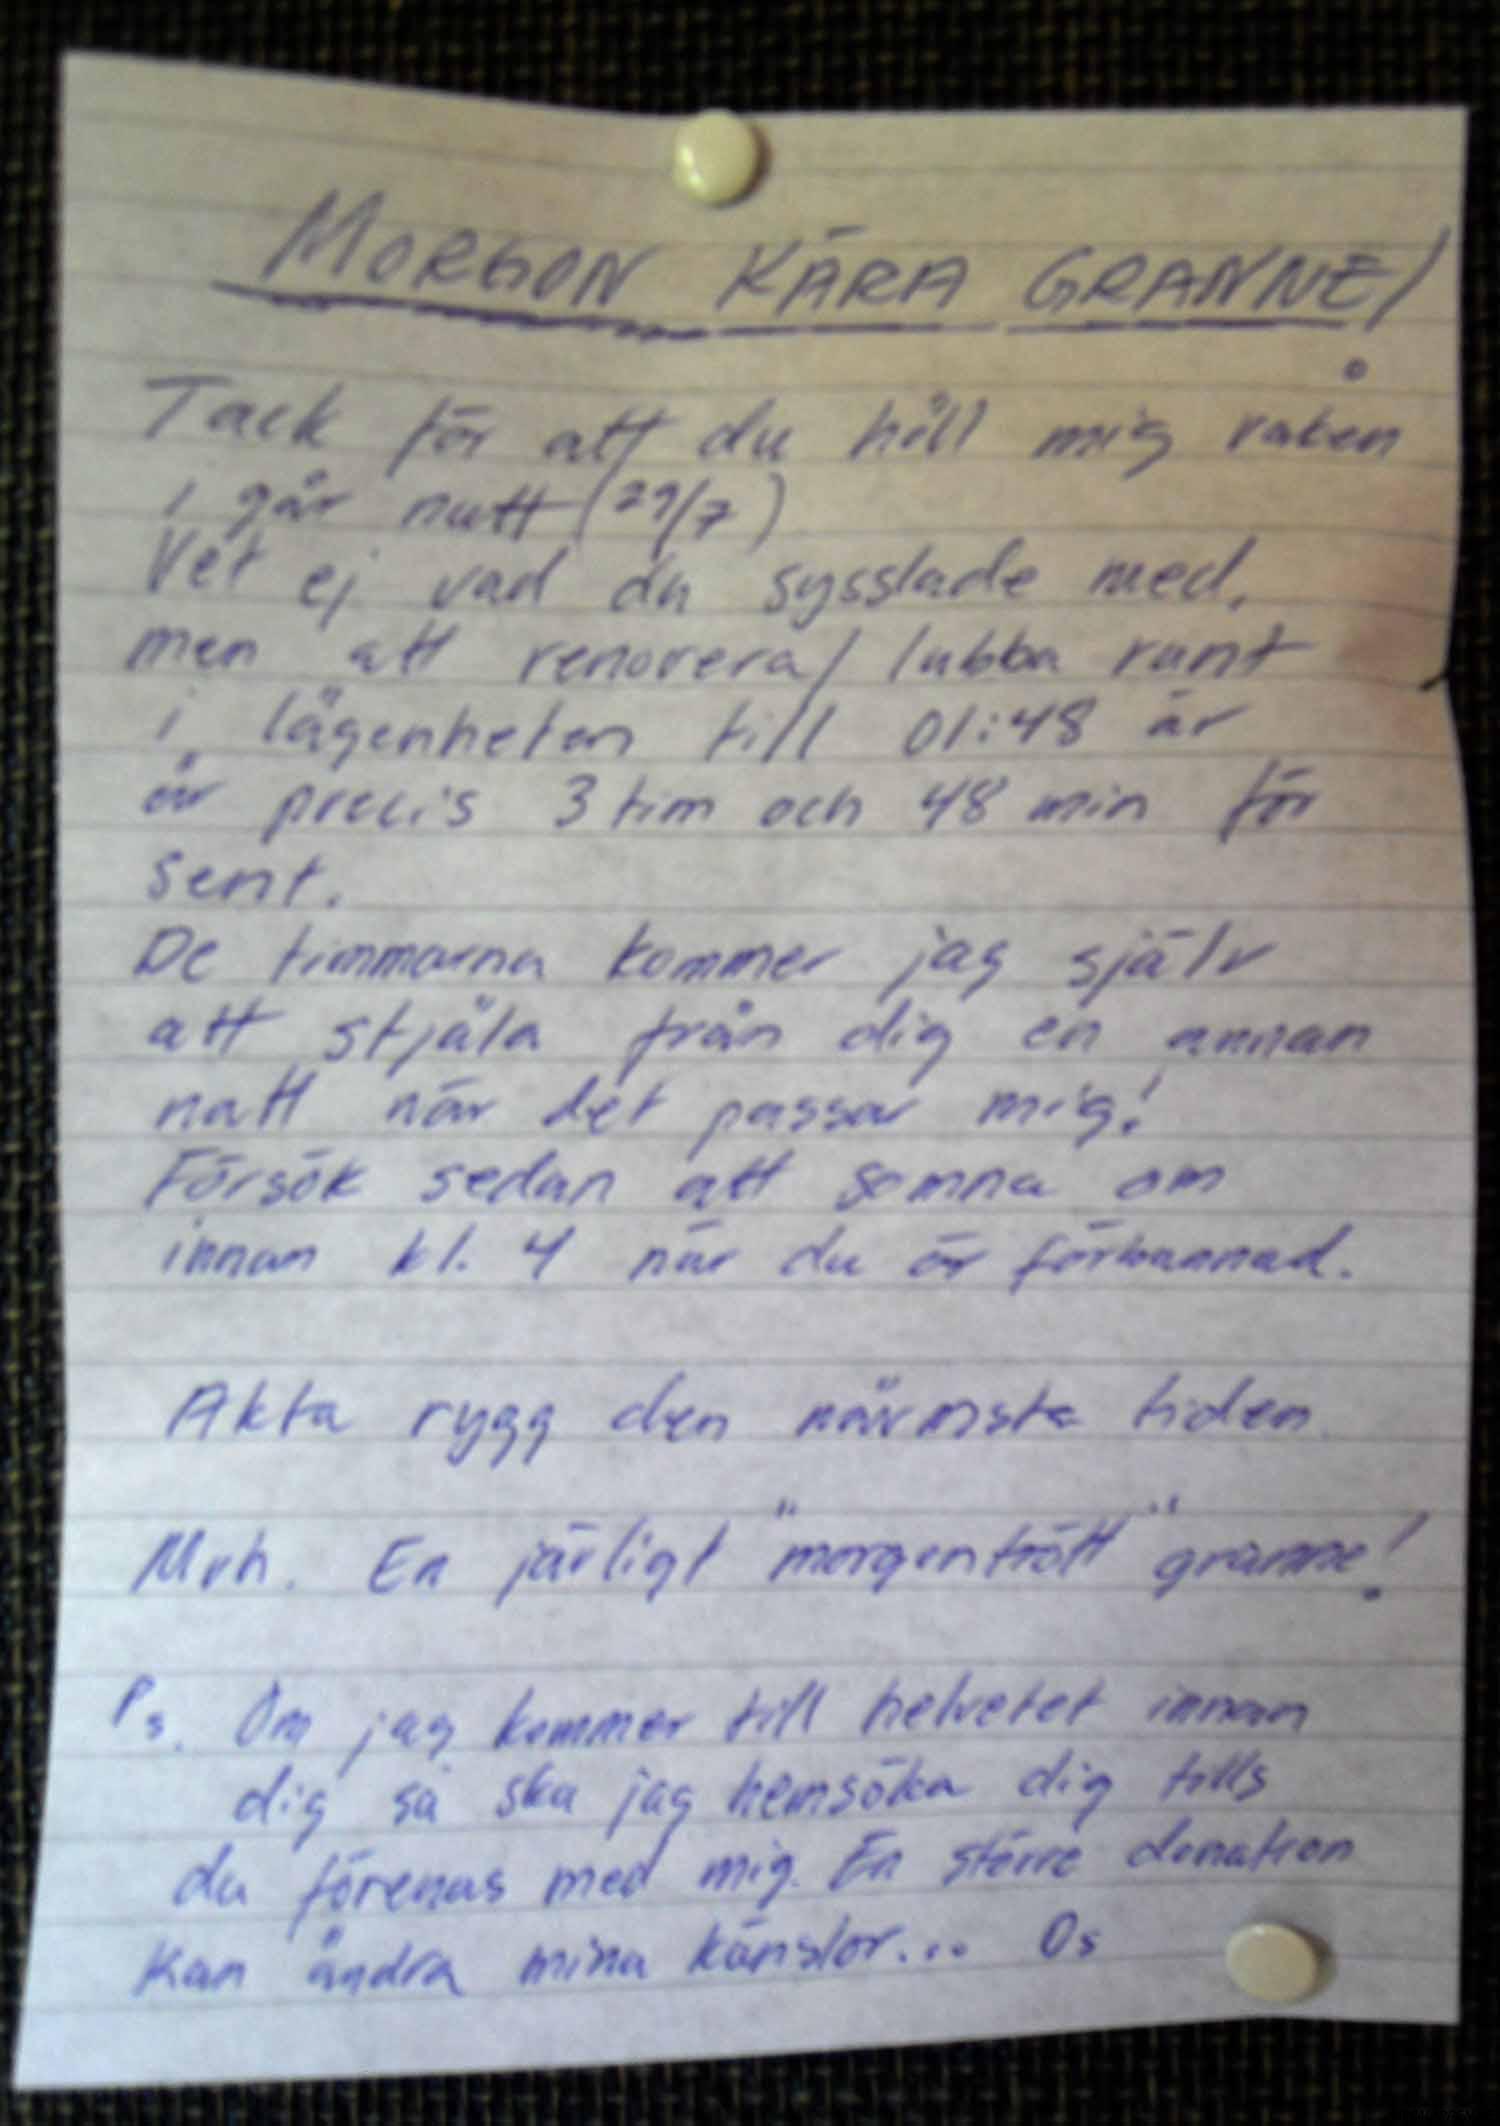 MORGON KÄRA GRANNE!
Tack för att du höll mig vaken
i går natt (29/7)
Vet ej vad du sysslade med,
men att renovera/lubba runt
i lägenheten till 01:48 är
är precis 3 tim och 48 min för
sent.
De timmarna kommer jag själv
att stjäla från dig en annan
natt när det passar mig!
Försök sedan att somna om
innan kl. 4 när du är förbannad.
Akta rygg den närmsta tiden.
Mvh. En jävligt "morgontrött" granne!
Ps. Om jag kommer till helvetet innan
dig så ska jag hemsöka dig tills
du förenas med mig. En större donation
kan ändra mina känslor... Ds